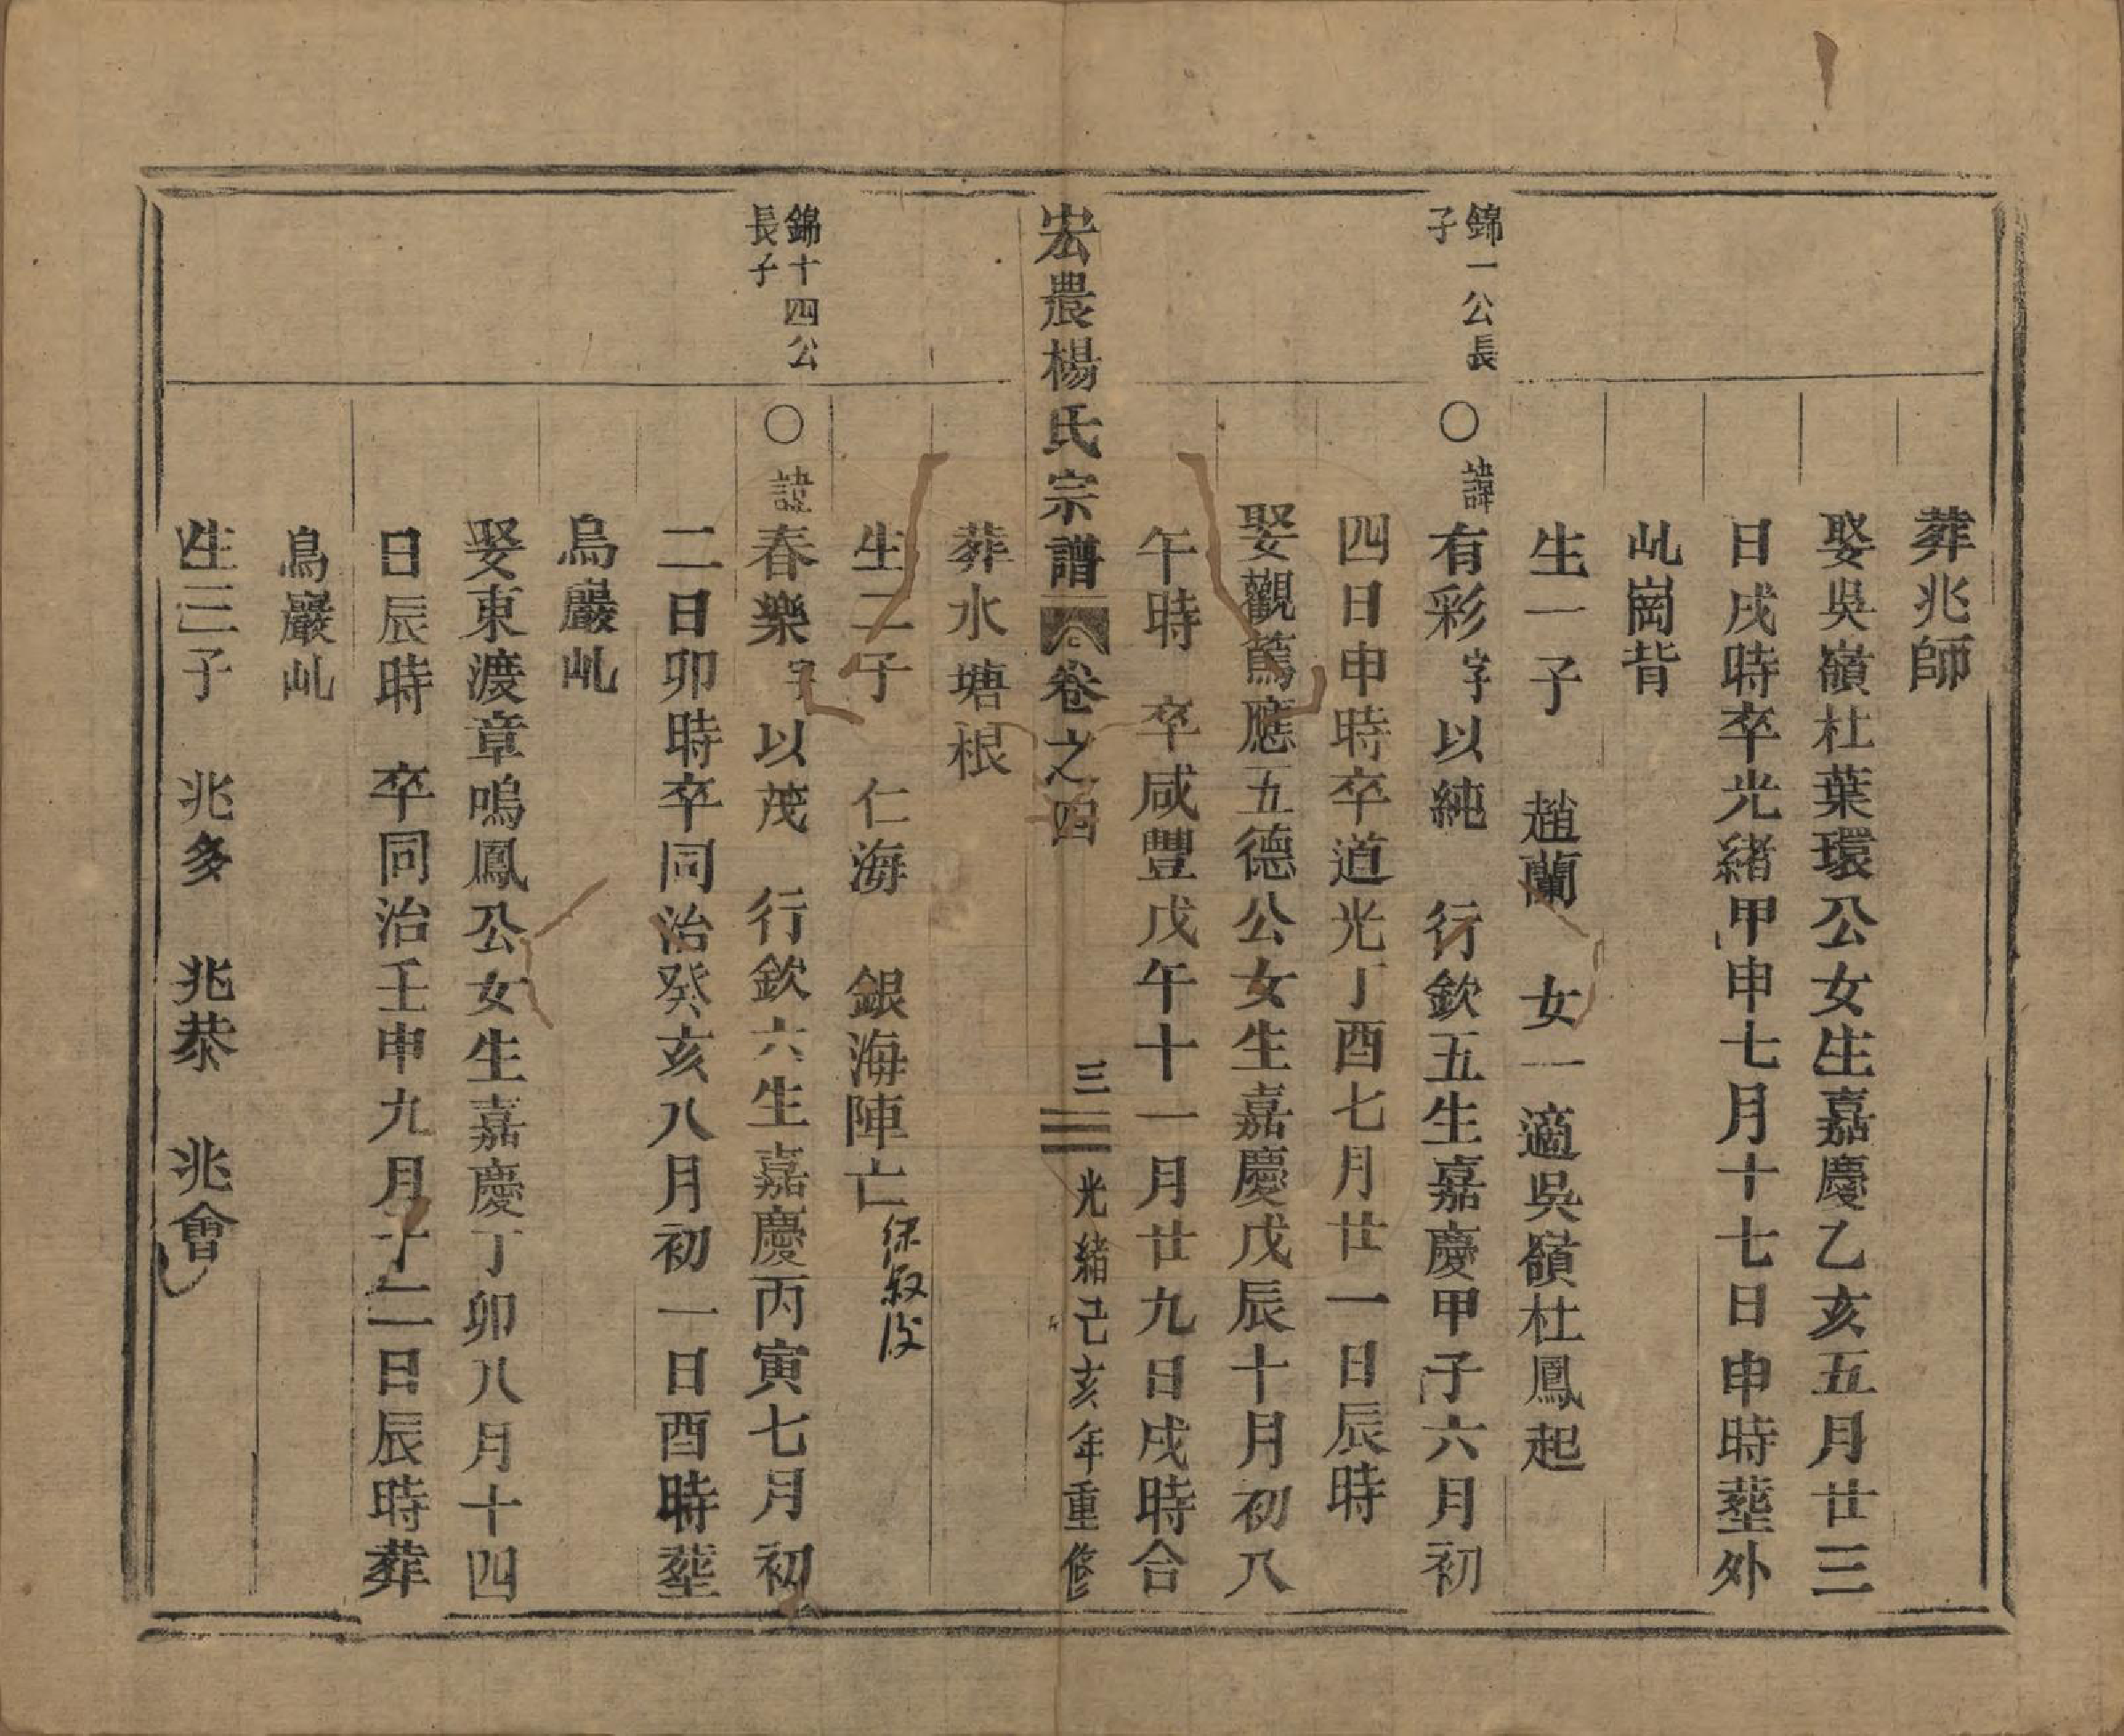 葬兆師
娶吳嶺杜葉環公女生嘉慶乙亥五月廿三
日戌時卒光緒甲申七月十七日申時塟外
乢崗背
生一子　趙蘭　女一適吳嶺杜鳳起
錦一公長
子
○諱有彩字以純　行欽五生嘉慶甲子六月初
四日申時卒道光丁酉七月廿一日辰時
娶觀蔿應五德公女生嘉慶戊辰十月初八
午時　卒咸豐戊午十一月廿九日戌時合
宏農楊氏宗譜　卷之四　三　光緒己亥年重修
葬水塘根
生二子　仁海　銀海陣亡
錦十四公
長子
○諱春樂字以茂　行欽六生嘉慶丙寅七月初
二日卯時卒同治癸亥八月初一日酉時塟
烏巖乢
娶東渡章鳴鳳公女生嘉慶丁卯八月十四
日辰時　卒同治壬申九月十二日辰時葬
烏巖乢
生三子　兆多　兆恭　兆會